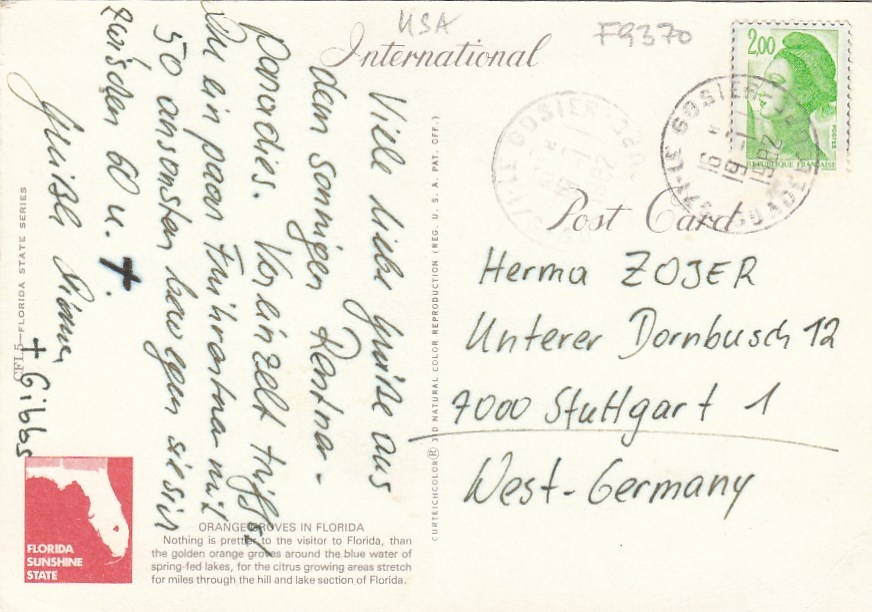 USA
F9370
International
Post Card
2,00
POSTES
REPUBLIQUE FRANÇAISE
GOSIER
16
GOSIER
Viele liebe Grüße aus
dem sonnigen Rentner-
paradies. Vereinzelt triffst
Du ein paar Frührentner mit
50 ansonsten bewegen sie sich
zwischen 60 u. +.
Grüßle
+ Gibbs
Herma ZOJER
Unterer Dornbusch 12
7000 Stuttgart 1
West-Germany
CFL5—FLORIDA STATE SERIES
CURTEICHCOLOR® 3-D NATURAL COLOR REPRODUCTION (REG. U. S. A. PAT. OFF.)
FLORIDA
SUNSHINE
STATE
ORANGE GROVES IN FLORIDA
Nothing is prettier to the visitor to Florida, than
the golden orange groves around the blue water of
spring-fed lakes, for the citrus growing areas stretch
for miles through the hill and lake section of Florida.